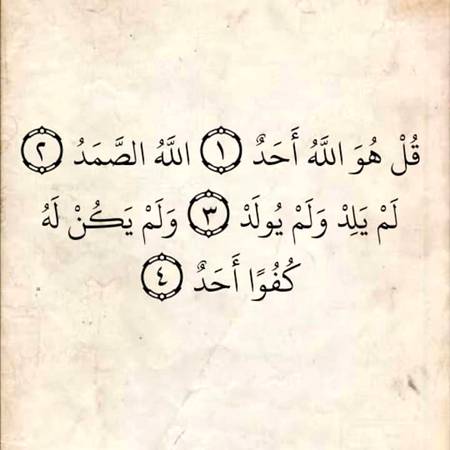 قُلْ هُوَ اللَّهُ أَحَدٌ ١ اللَّهُ الصَّمَدُ ٢
لَمْ يَلِدْ وَلَمْ يُولَدْ ٣ وَلَمْ يَكُنْ لَهُ
كُفُوًا أَحَدٌ ٤